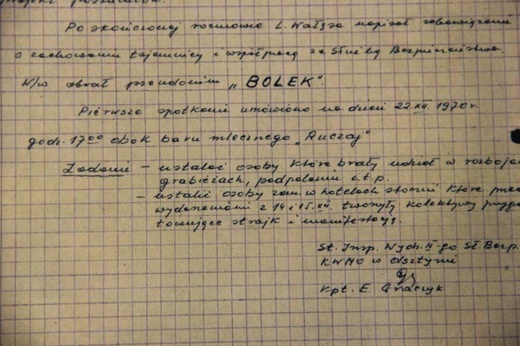 Po skończonej rozmowie L. Wałęsa napisał zobowiązanie
o zachowaniu tajemnicy i współpracy ze Służbą Bezpieczeństwa.
W/w obrał pseudonim „BOLEK".
Pierwsze spotkanie umówiono na dzień 22.XII.1970r.
godz. 17⁰⁰ obok baru mlecznego „Ruczaj"
Zadanie – ustalać osoby które brały udział w rozboja
grabieżach, podpaleniu i.t.p.
– ustalić osoby zam. w hotelach stoczni które
wydarzeniami z 14 i 15.XII. tworzyły kolektywy
strajk i manifestację.
St. Insp. Wydz. II-go Sł. Bezp.
KWMO w Olsztynie
Kpt. E. Graczyk